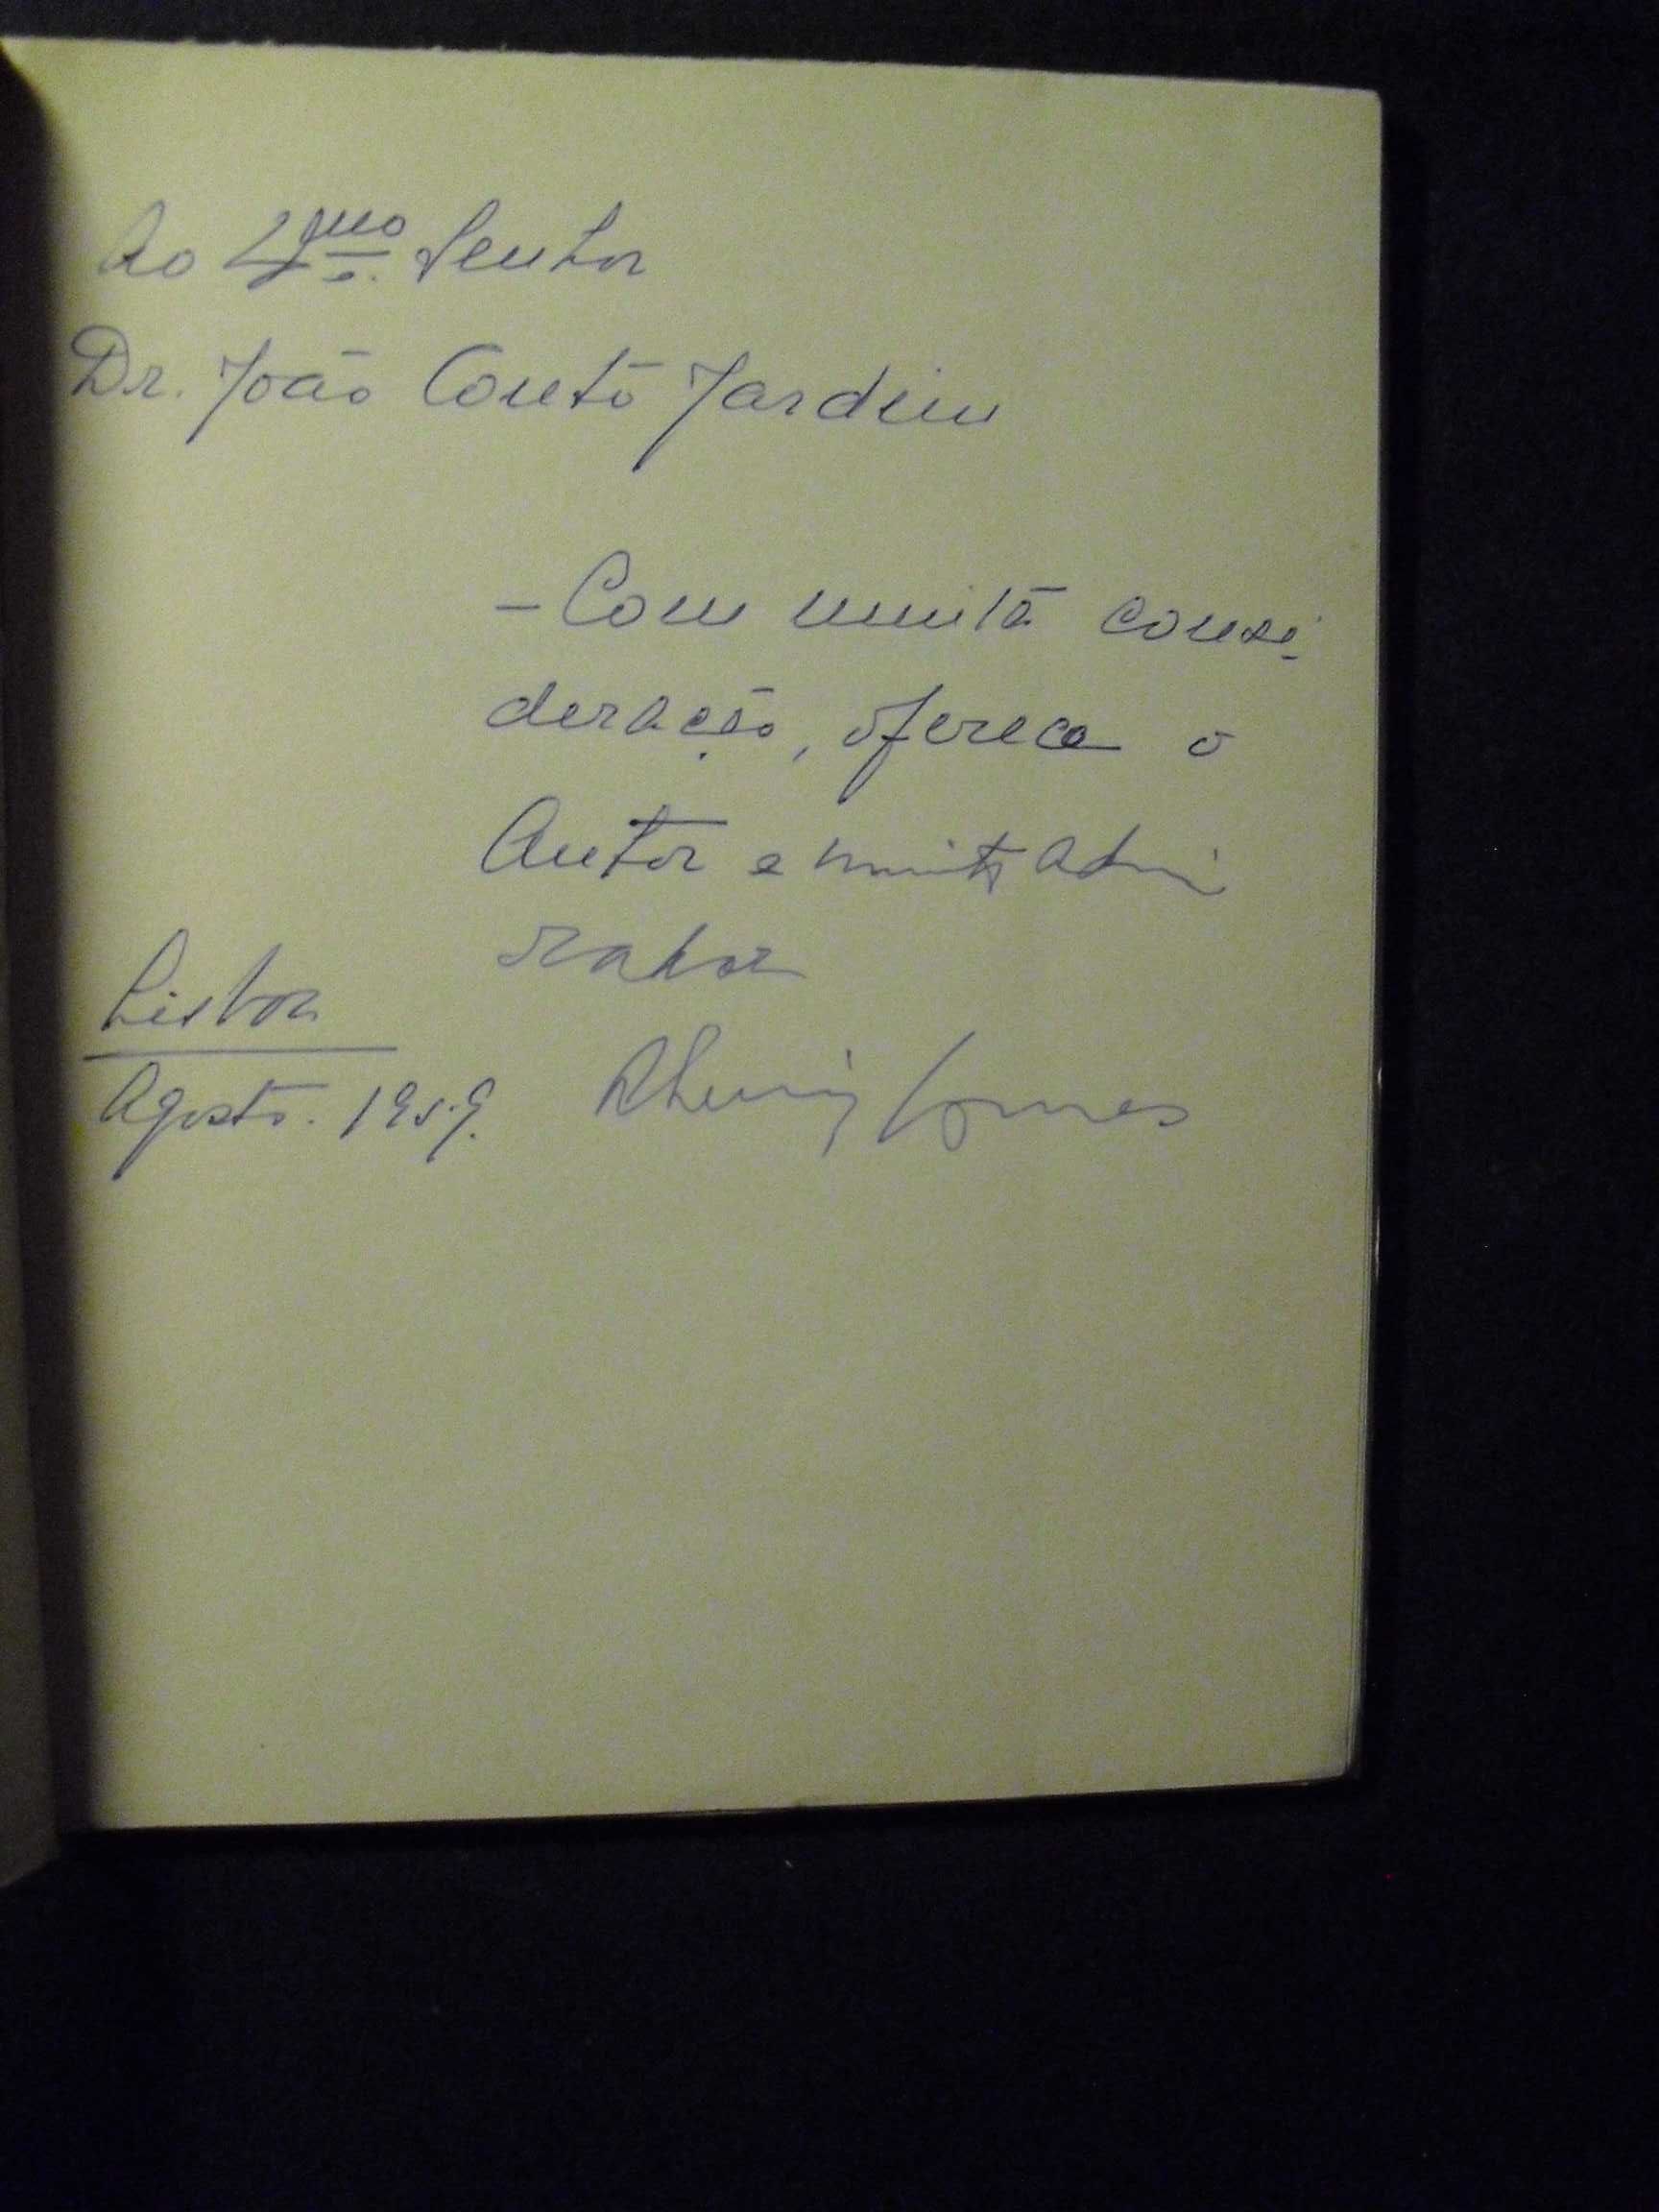 Ao Exmo. Senhor
Dr. João Couto Jardim
- Com muita consi-
deração, oferece o
Autor e muito admi
rador
Lisboa
Agosto. 1959.
Gomes